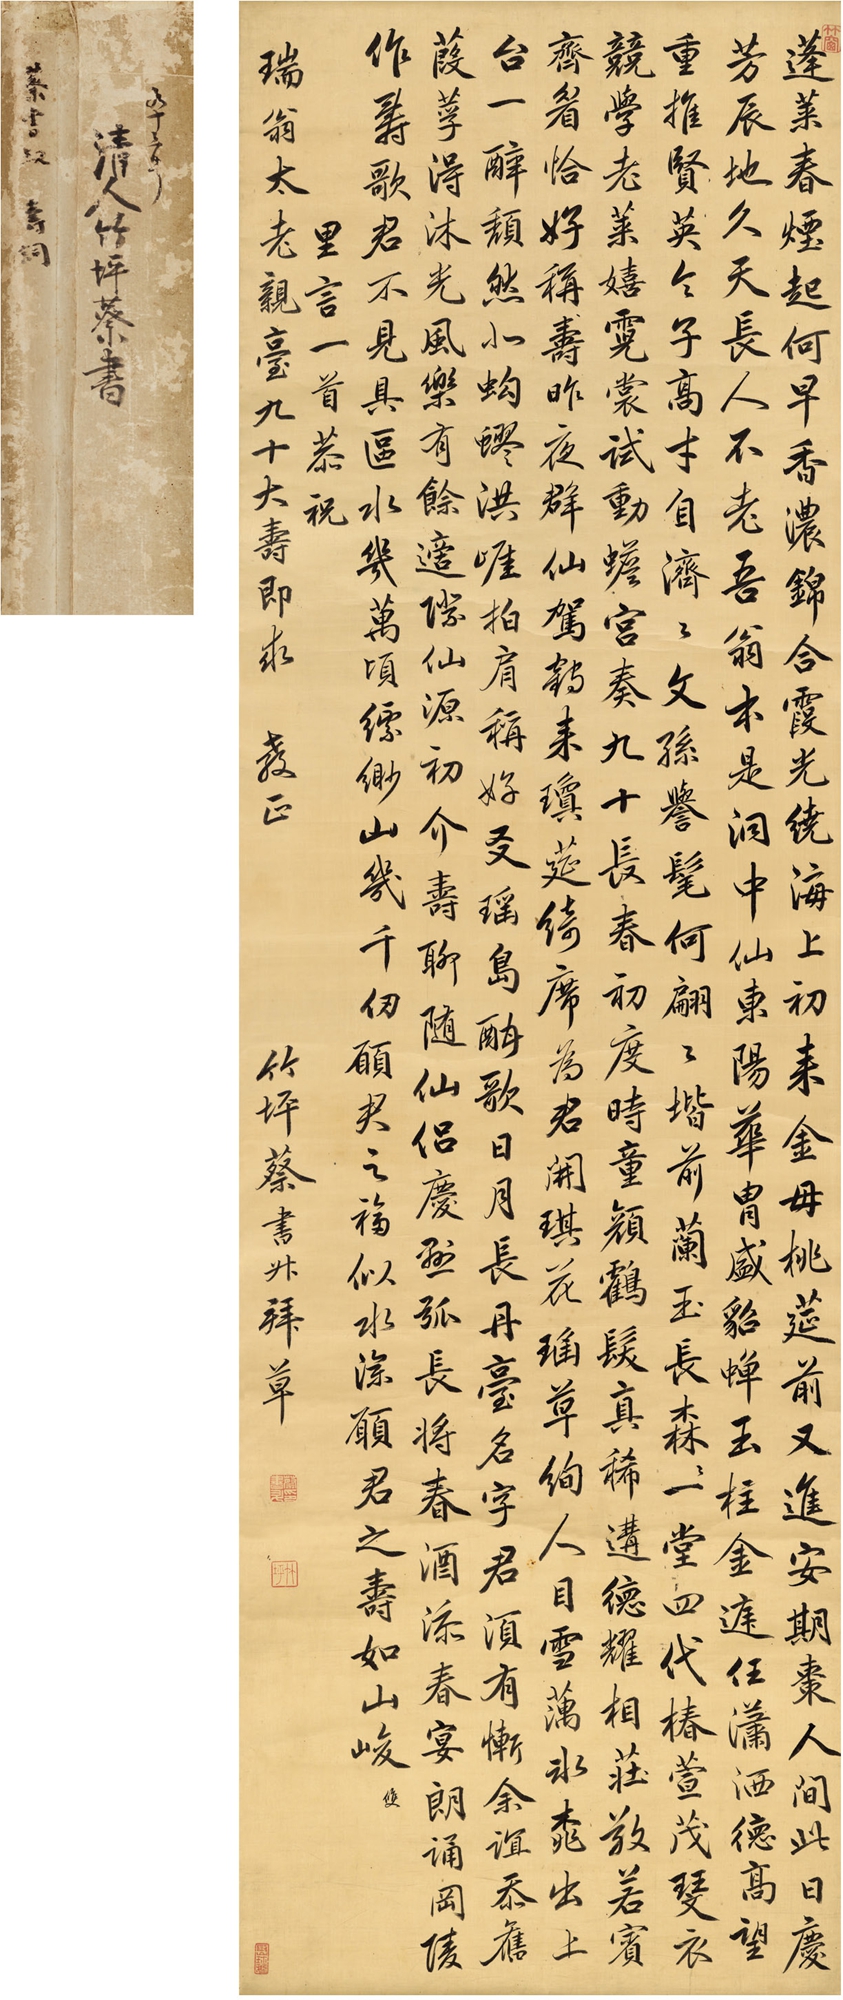 蓬萊春煙起何早香濃錦合霞光繞海上初来金母桃筵前又進安期棗人間此日慶
芳辰地久天長人不老吾翁本是洞中仙東陽華胄盛貂蟬玉柱金遶任瀟洒德高望
重推賢英令子高才自濟〻文孫譽髦何翩〻堦前蘭玉長森〻一堂四代椿萱茂斑衣
競學老萊嬉霓裳試動蟾宮奏九十長春初度時童顏鶴髮真稀遘德耀相莊敬若賓
齊眉恰好稱壽昨夜群仙駕鶴来瓊筵綺席為君開琪花瑶草絢人目雪藕冰桃出上
台一醉頹然小蚴蟉洪崖拍肩稱好友瑶島酣歌日月長丹臺名字君須有慚余誼忝舊
葭莩得沐光風樂有餘適際仙源初介壽聊随仙侣慶懸弧長将春酒添春宴朗誦岡陵
作壽歌君不見具區水幾萬頃縹緲山幾千仞願君之福似水深願君之壽如山峻
雙
里言一首恭祝
瑞翁太老親臺九十大壽即求 教正
竹坪蔡書升拜草
九十三年
清人竹坪蔡書
蔡書 壽詞